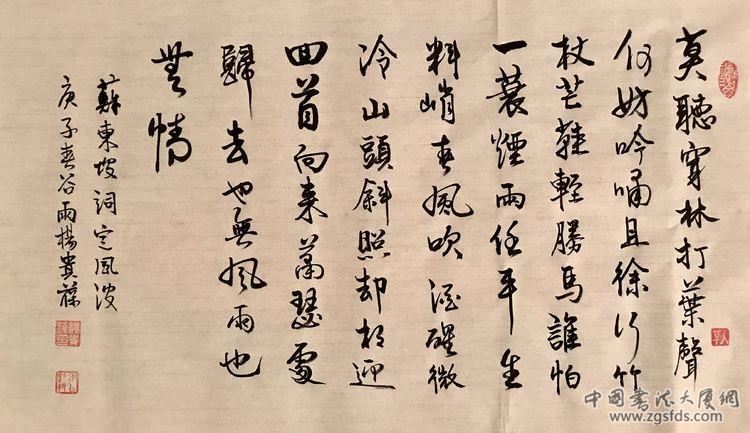 莫聽穿林打葉聲
何妨吟嘯且徐行竹
杖芒鞋輕勝馬誰怕
一蓑煙雨任平生
料峭春風吹酒醒微
冷山頭斜照却相迎
回首向来蕭瑟處
歸去也無風雨也
無情
蘇東坡詞定風波
庚子春谷雨楊貴葆
中国书法大厦網
www.zgsfds.com